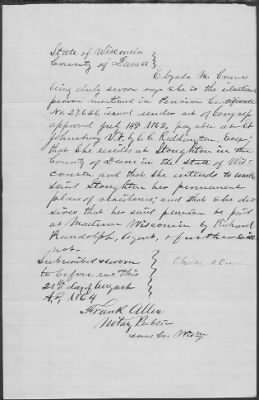 State of Wisconsin
County of Dane
being duly sworn says she is the identical
person mentioned in Pension Certificate
No issued under act of Congress
approved July 14th 1862, payable at St
Johnsbury Vt. by
that she resides at Stoughton in the
County of Dane in the State of Wis-
consin and that she intends to make
said Stoughton her permanent
place of residence, and that she de
sires that her said pension be paid
at Madison Wisconsin by Richard
Randolph, Agent, & further
not.
Subscribed & sworn
to before me this
20th day of August
AD, 1864
Frank Allen
Notary Public
Dane Co